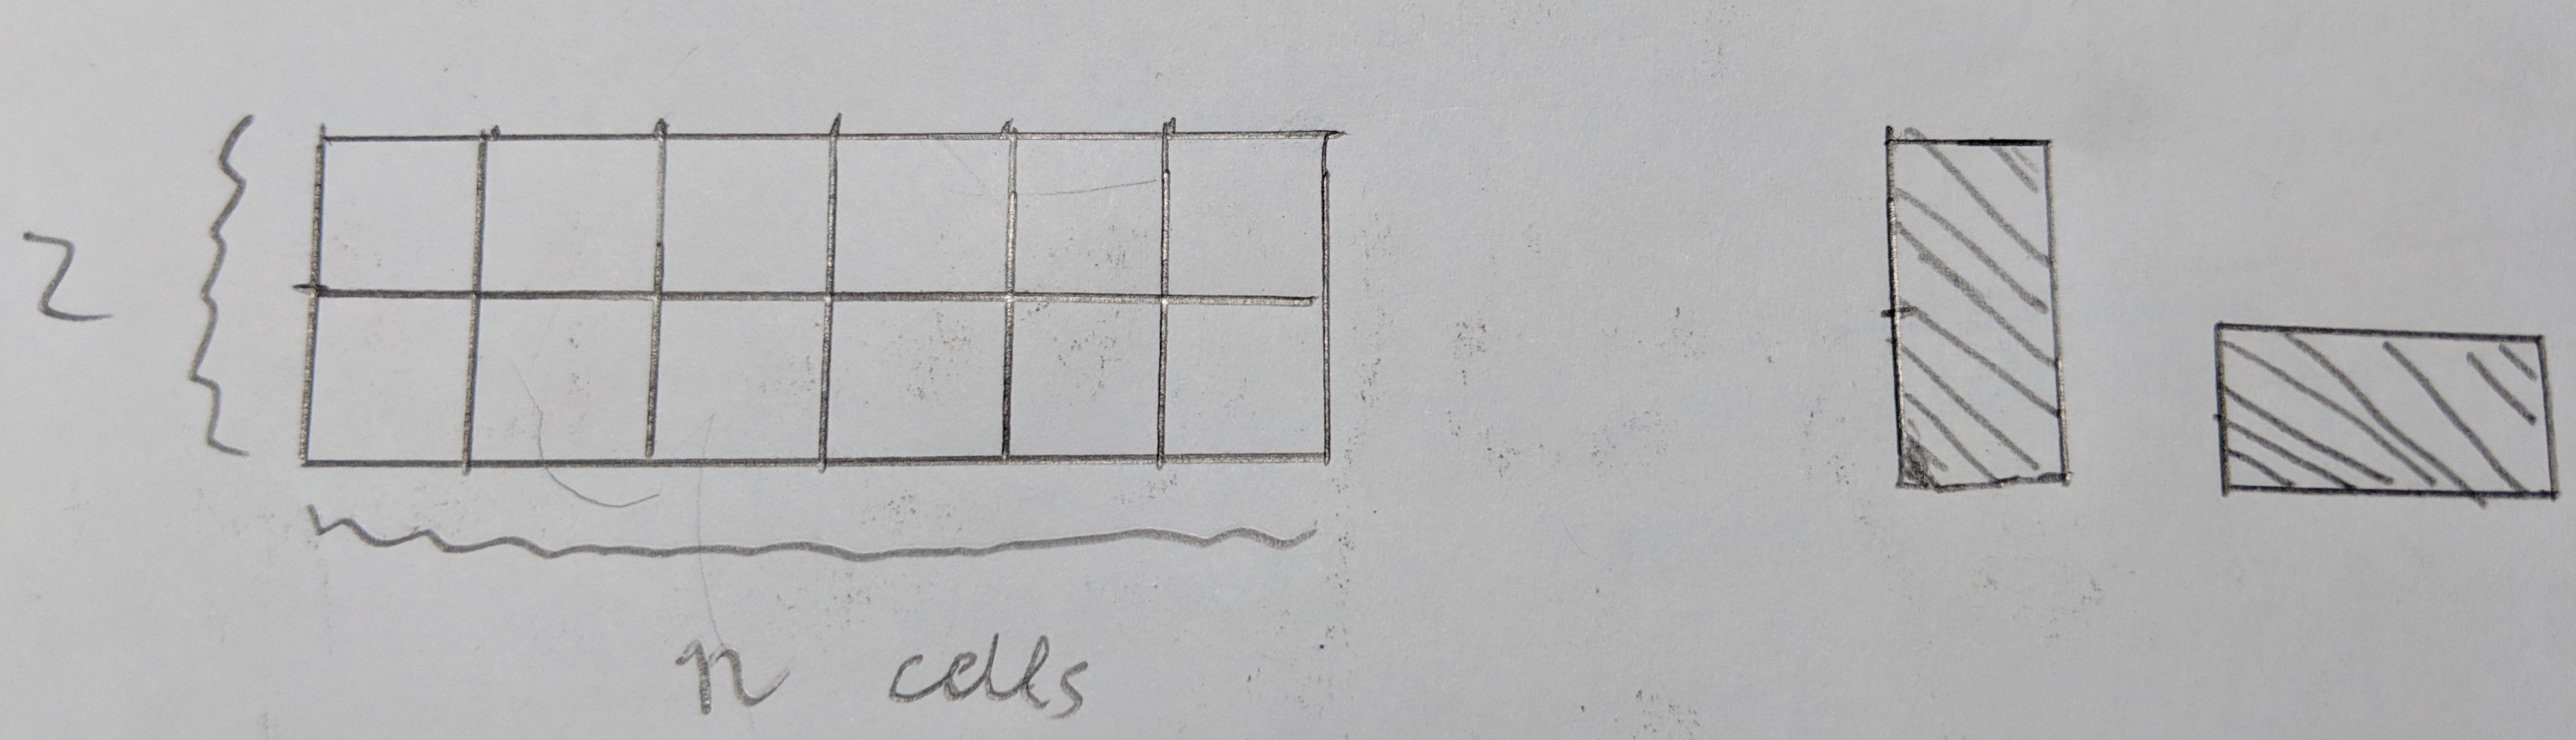 2
n cells